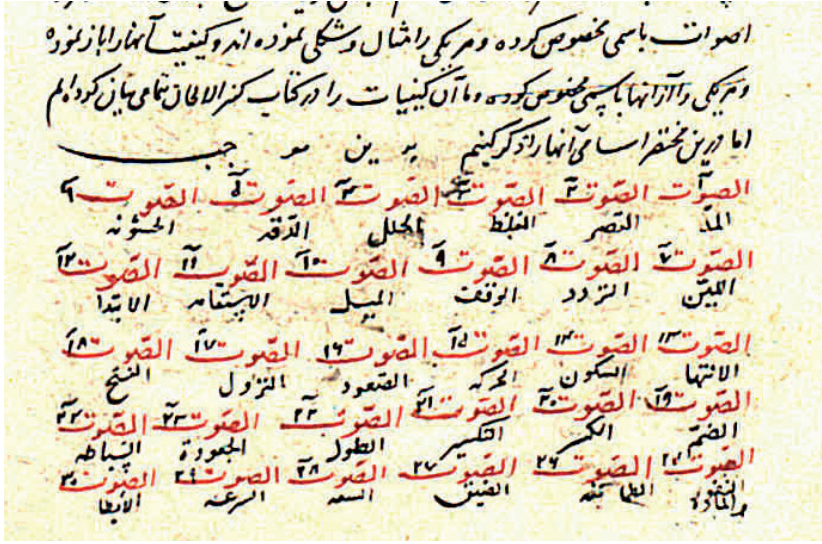 اصوات باسمی مخصوص کرده و هر یکی را مثال و شکلی نموده اند و کیفیت آنها را باز نموده
و هر یکی را از آنها باسمی مخصوص کرده و ما آن کیفیات را در کتاب کنز الالحان بتمامی بیان کرده ایم
اما درین مختصر اسامی آنها را ذکر کنیم بدین موجب
الصوت ۱ الصّوت ۲ الصّوت ۳ الصّوت ۴ الصّوت ۵ الصّوت ۶
المدّ القصر الغلظ الدّقه الخشونه
الصّوت ۷ الصّوت ۸ الصّوت ۹ الصّوت ۱۰ الصّوت ۱۱ الصّوت ۱۲
الليّن التردد الوقفت الميل الاستقامه الابتدا
الصّوت ۱۳ الصّوت ۱۴ الصّوت ۱۵ الصّوت ۱۶ الصّوت ۱۷ الصّوت ۱۸
الانتها السکون الحرکه الصّعود النزول الفتح
الصّوت ۱۹ الصّوت ۲۰ الصّوت ۲۱ الصّوت ۲۲ الصّوت ۲۳ الصّوت ۲۴
الضمّ الکسر التکسير الطول الجعودة السّباطه
الصّوت الصّوت ۲۶ الصّوت ۲۷ الصّوت ۲۸ الصّوت ۲۹ الصّوت ۳۰
الضيق السعه السرعه الابطا